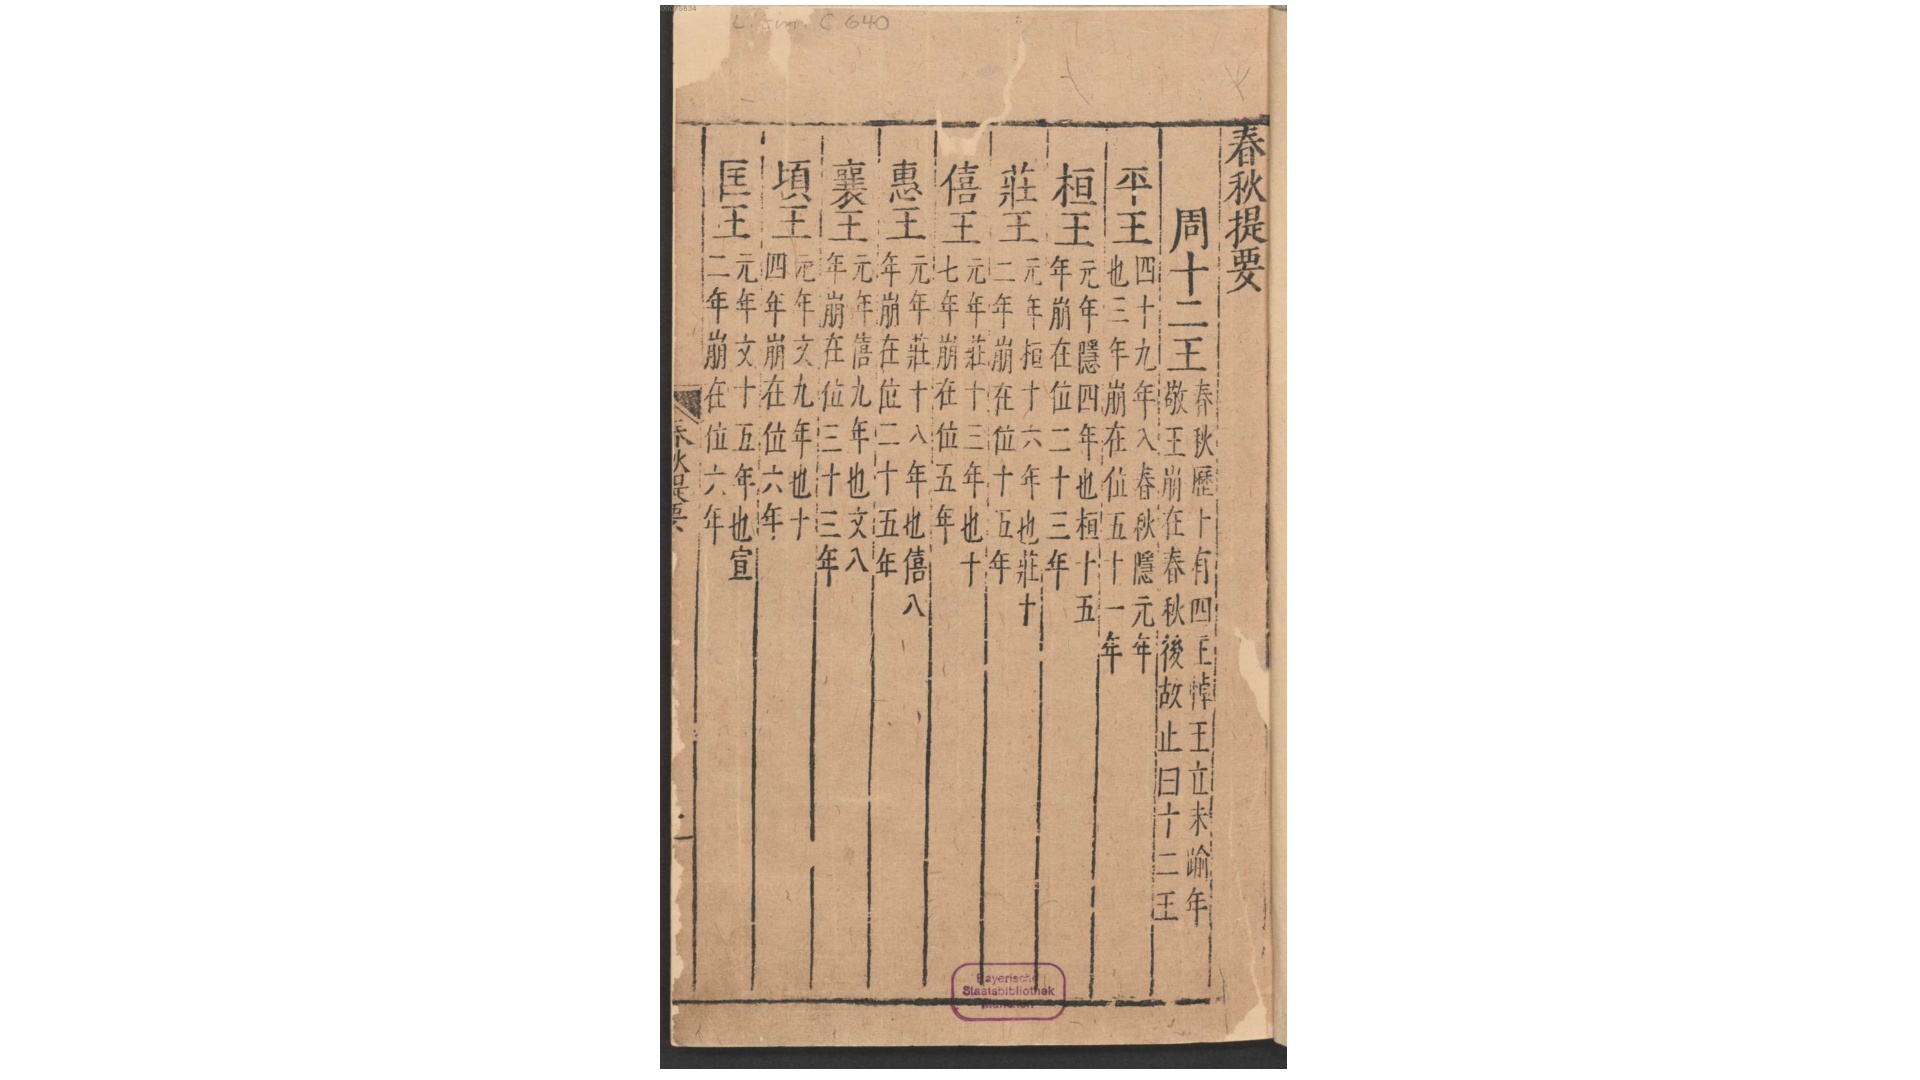 L. sin. C 640
春秋提要
周十二王
春秋歷十有四王悼王立未踰年
敬王崩在春秋後故止曰十二王
平王
四十九年入春秋隱元年
也三年崩在位五十一年
桓王
元年隱四年也桓十五
年崩在位二十三年
莊王
元年桓十六年也莊十
二年崩在位十五年
僖王
元年莊十三年也十
七年崩在位五年
惠王
元年莊十八年也僖八
年崩在位二十五年
襄王
元年僖九年也文八
年崩在位三十三年
頃王
元年文九年也十
四年崩在位六年
匡王
元年文十五年也宣
二年崩在位六年
春秋提要
Bayerische
Staatsbibliothek
München